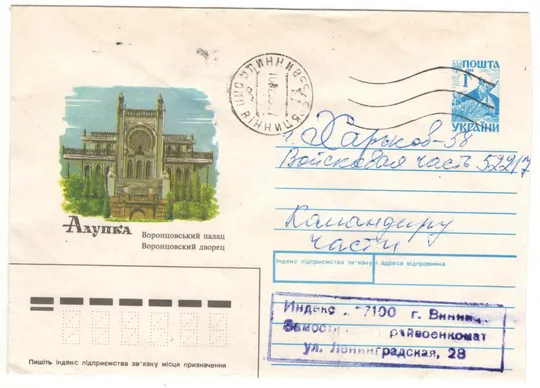 ПОШТА
УКРАЇНИ
г. Харьков-58
Войсковая часть 52217
Командиру
части
Алупка
Воронцовський палац
Воронцовский дворец
Індекс підприємства зв'язку і адреса відправника
Индекс 7100 г. Винни
райвоенкомат
ул. Ленинградская, 28
Пишіть індекс підприємства зв'язку місця призначення